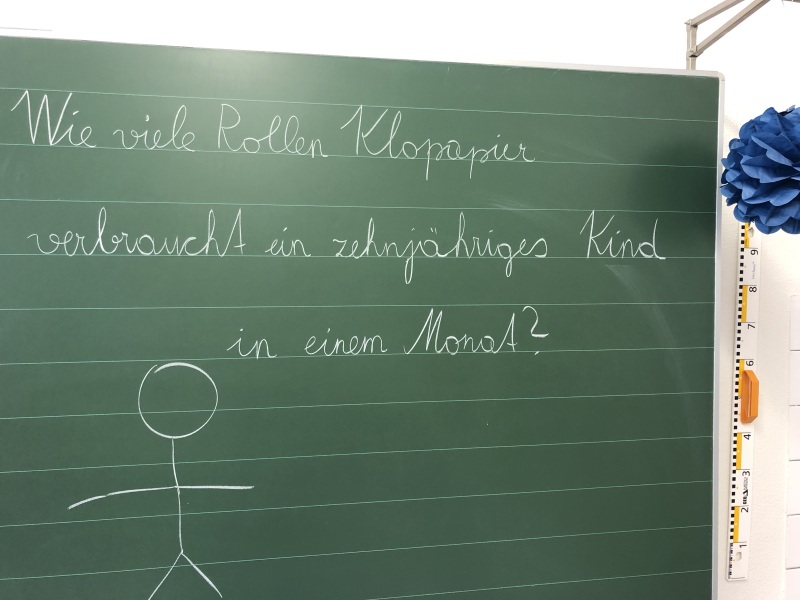 Wie viele Rollen Klopapier
verbraucht ein zehnjähriges Kind
in einem Monat?
9
8
7
6
4
3
2
1